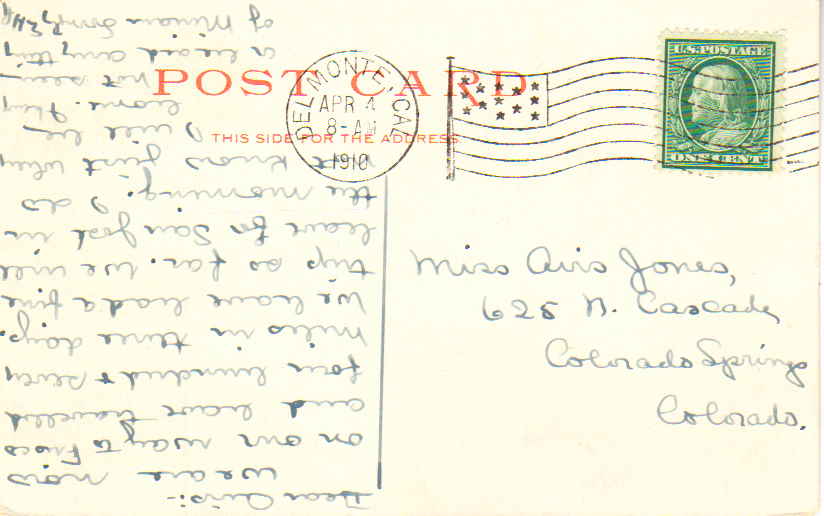 POST CARD
THIS SIDE FOR THE ADDRESS
DEL MONTE, CAL.
APR 4
8-AM
1910
U.S. POSTAGE
ONE CENT
Miss Avis Jones,
625 N. Cascade,
Colorado Springs
Colorado.
Dear Avis:-
We are now
on our way to Frisco
and have travelled
four hundred & seven
miles in three days.
We have had a fine
trip so far. We will
leave for San José in
the morning. I do
not know just when
I will be
home. They
have not seen
or heard any thing
of Miriam